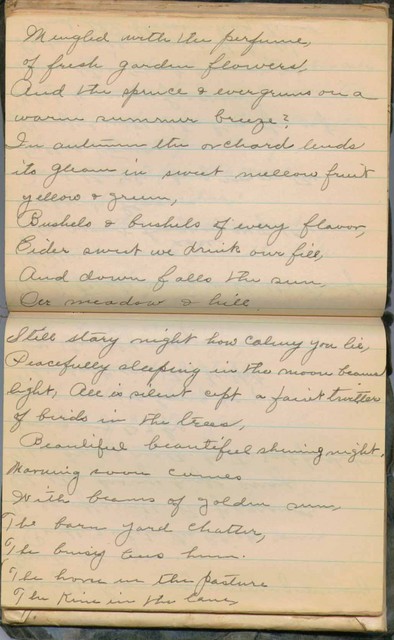 Mingled with the perfume,
of fresh garden flowers,
And the spruce & evergreens on a
warm summer breeze?
In autumn the orchard lends
its gleam in sweet mellow fruit
yellow & green,
Bushels & bushels of every flavor,
Cider sweet we drink our fill,
And down falls the sun,
Oer meadow & hill.
Still stary night how calmy you lie,
Peacefully sleeping in the moon beams
light, All is silent cept a faint twitter
of birds in the trees,
Beautiful beautiful shining night,
Morning soon comes
With beams of golden sun,
The barn yard chatter,
The busy bees hum.
The horse in the pasture
The Kine in the lane,